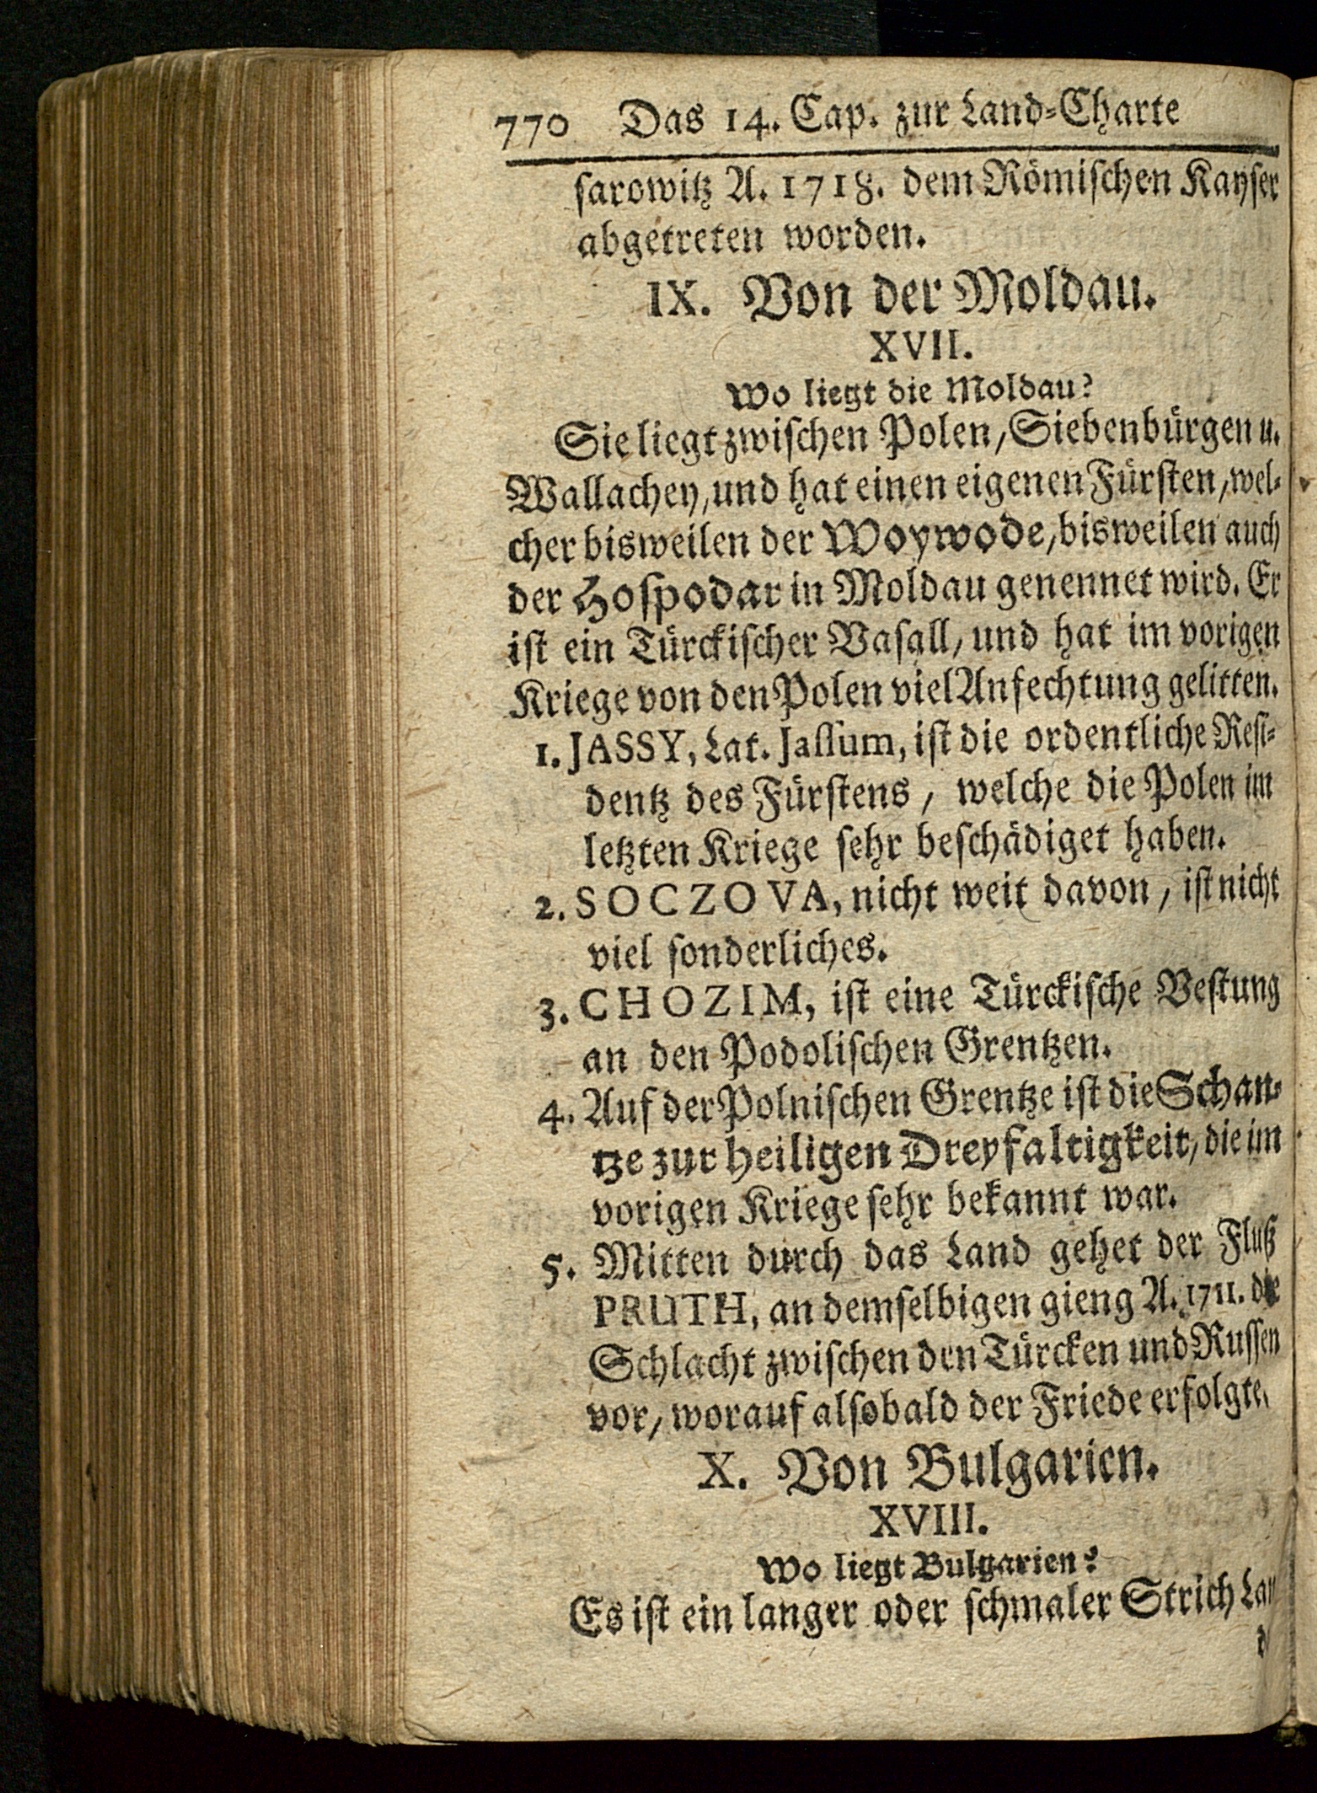 770 Das 14. Cap. zur Land-Charte
sarowitz A. 1718. dem Römischen Kayser
abgetreten worden.
IX. Von der Moldau.
XVII.
Wo liegt die Moldau?
Sie liegt zwischen Polen, Siebenbürgen u.
Wallachey, und hat einen eigenen Fürsten, wel-
cher bisweilen der Woywode, bisweilen auch
der Hospodar in Moldau genennet wird. Er
ist ein Türckischer Vasall, und hat im vorigen
Kriege von den Polen viel Anfechtung gelitten.
1. JASSY, Lat. Jassum, ist die ordentliche Resi-
dentz des Fürstens, welche die Polen im
letzten Kriege sehr beschädiget haben.
2. SOCZOVA, nicht weit davon, ist nicht
viel sonderliches.
3. CHOZIM, ist eine Türckische Vestung
an den Podolischen Grentzen.
4. Auf der Polnischen Grentze ist die Schan-
tze zur heiligen Dreyfaltigkeit, die im
vorigen Kriege sehr bekannt war.
5. Mitten durch das Land gehet der Fluß
PRUTH, an demselbigen gieng A. 1711. die
Schlacht zwischen den Türcken und Russen
vor, worauf alsobald der Friede erfolgte.
X. Von Bulgarien.
XVIII.
Wo liegt Bulgarien?
Es ist ein langer oder schmaler Strich